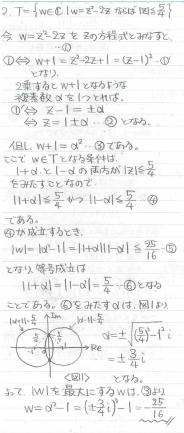 2. T={w∈ℂ | w=z²-2z ならば |z|≦5/4}
今 w=z²-2z を zの方程式とみなすと、
…①
①⇔ w+1=z²-2z+1=(z-1)² …①'
となり、
2乗すると w+1となるような
複素数 αを1つとれば、
①'⇔ z-1=±α
⇔ z=1±α …② となる。
但し w+1=α² …③ である。
ここで w∈T となる条件は
1+αと1-αの両方が|z|≦5/4
をみたすことなので
|1+α|≦5/4 かつ |1-α|≦5/4 …④
である。
④が成立するとき、
|w|=|α²-1|=|1+α||1-α|≦25/16 …⑤
となり、等号成立は
|1+α|=|1-α|=5/4 …⑥ となる
ことである。⑥をみたすαは、図1より
|α+1|=5/4 Im |α-1|=5/4
-1 0 1 Re
<図1>
α=±√((5/4)²-1²) i
=±3/4 i
となる。
よって |w|を最大にするwは、③より
w=α²-1=(±3/4 i)²-1=-25/16